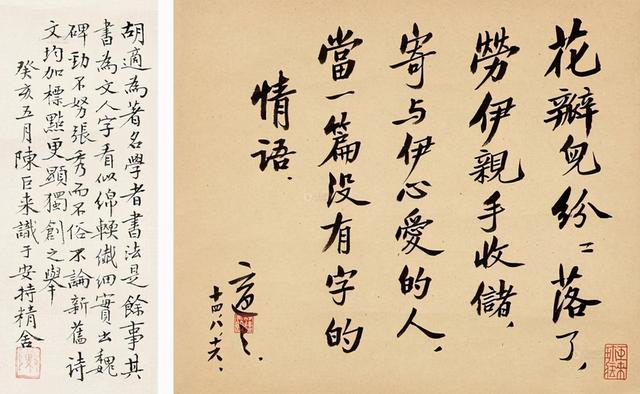 花瓣兒紛〻落了，
勞伊親手收儲，
寄与伊心愛的人，
當一篇没有字的
情語．
適之．
十四，八，十六，
胡適為著名學者書法是餘事其
書為文人字看似綿輭纖細實出魏
碑勁不努張秀而不俗不論新舊詩
文均加標點更顯獨創之舉
癸亥五月陳巨来識于安持精舍